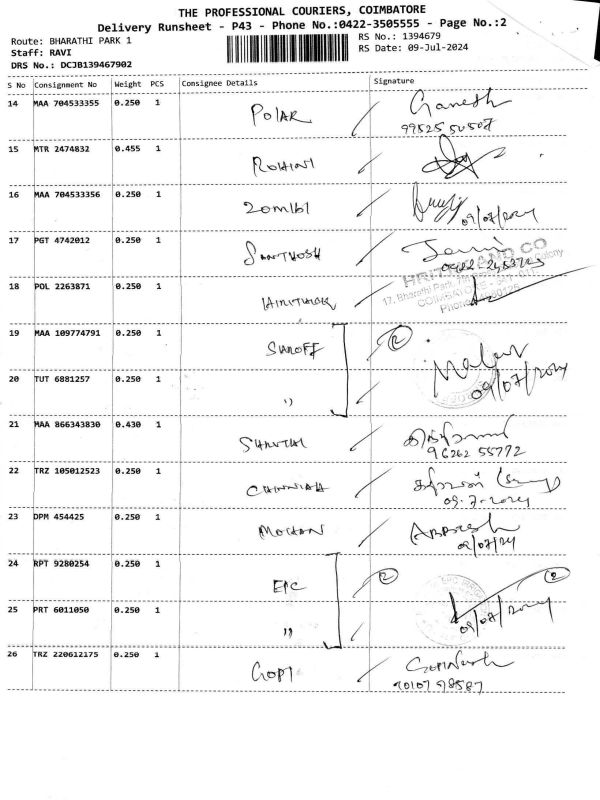 THE PROFESSIONAL COURIERS, COIMBATORE
Delivery Runsheet - P43 - Phone No.:0422-3505555 - Page No.:2
Route: BHARATHI PARK 1
RS No.: 1394679
Staff: RAVI
RS Date: 09-Jul-2024
DRS No.: DCJB139467902
S No Consignment No Weight PCS Consignee Details Signature
14 MAA 704533355 0.250 1 POLAR Ganesh
99525 50507
15 MTR 2474832 0.455 1 ROHINI
16 MAA 704533356 0.250 1 ZOMIBI
09/07/2024
17 PGT 4742012 0.250 1 SANTHOSH
0422-2453705
18 POL 2263871 0.250 1
HRITHIK AND CO
17, Bharathi Park, Colony
COIMBATORE
Phone
19 MAA 109774791 0.250 1 SANOFF 2
09/07/2024
20 TUT 6881257 0.250 1 "
21 MAA 866343830 0.430 1 SHANTHI
96262 55772
22 TRZ 105012523 0.250 1 CHINNIAH
09-7-2024
23 DPM 454425 0.250 1 MOHAN
09/07/24
24 RPT 9280254 0.250 1 EPC 2 2
09/07/2024
25 PRT 6011050 0.250 1 "
26 TRZ 220612175 0.250 1 GOPI Gopinath
90107 98587